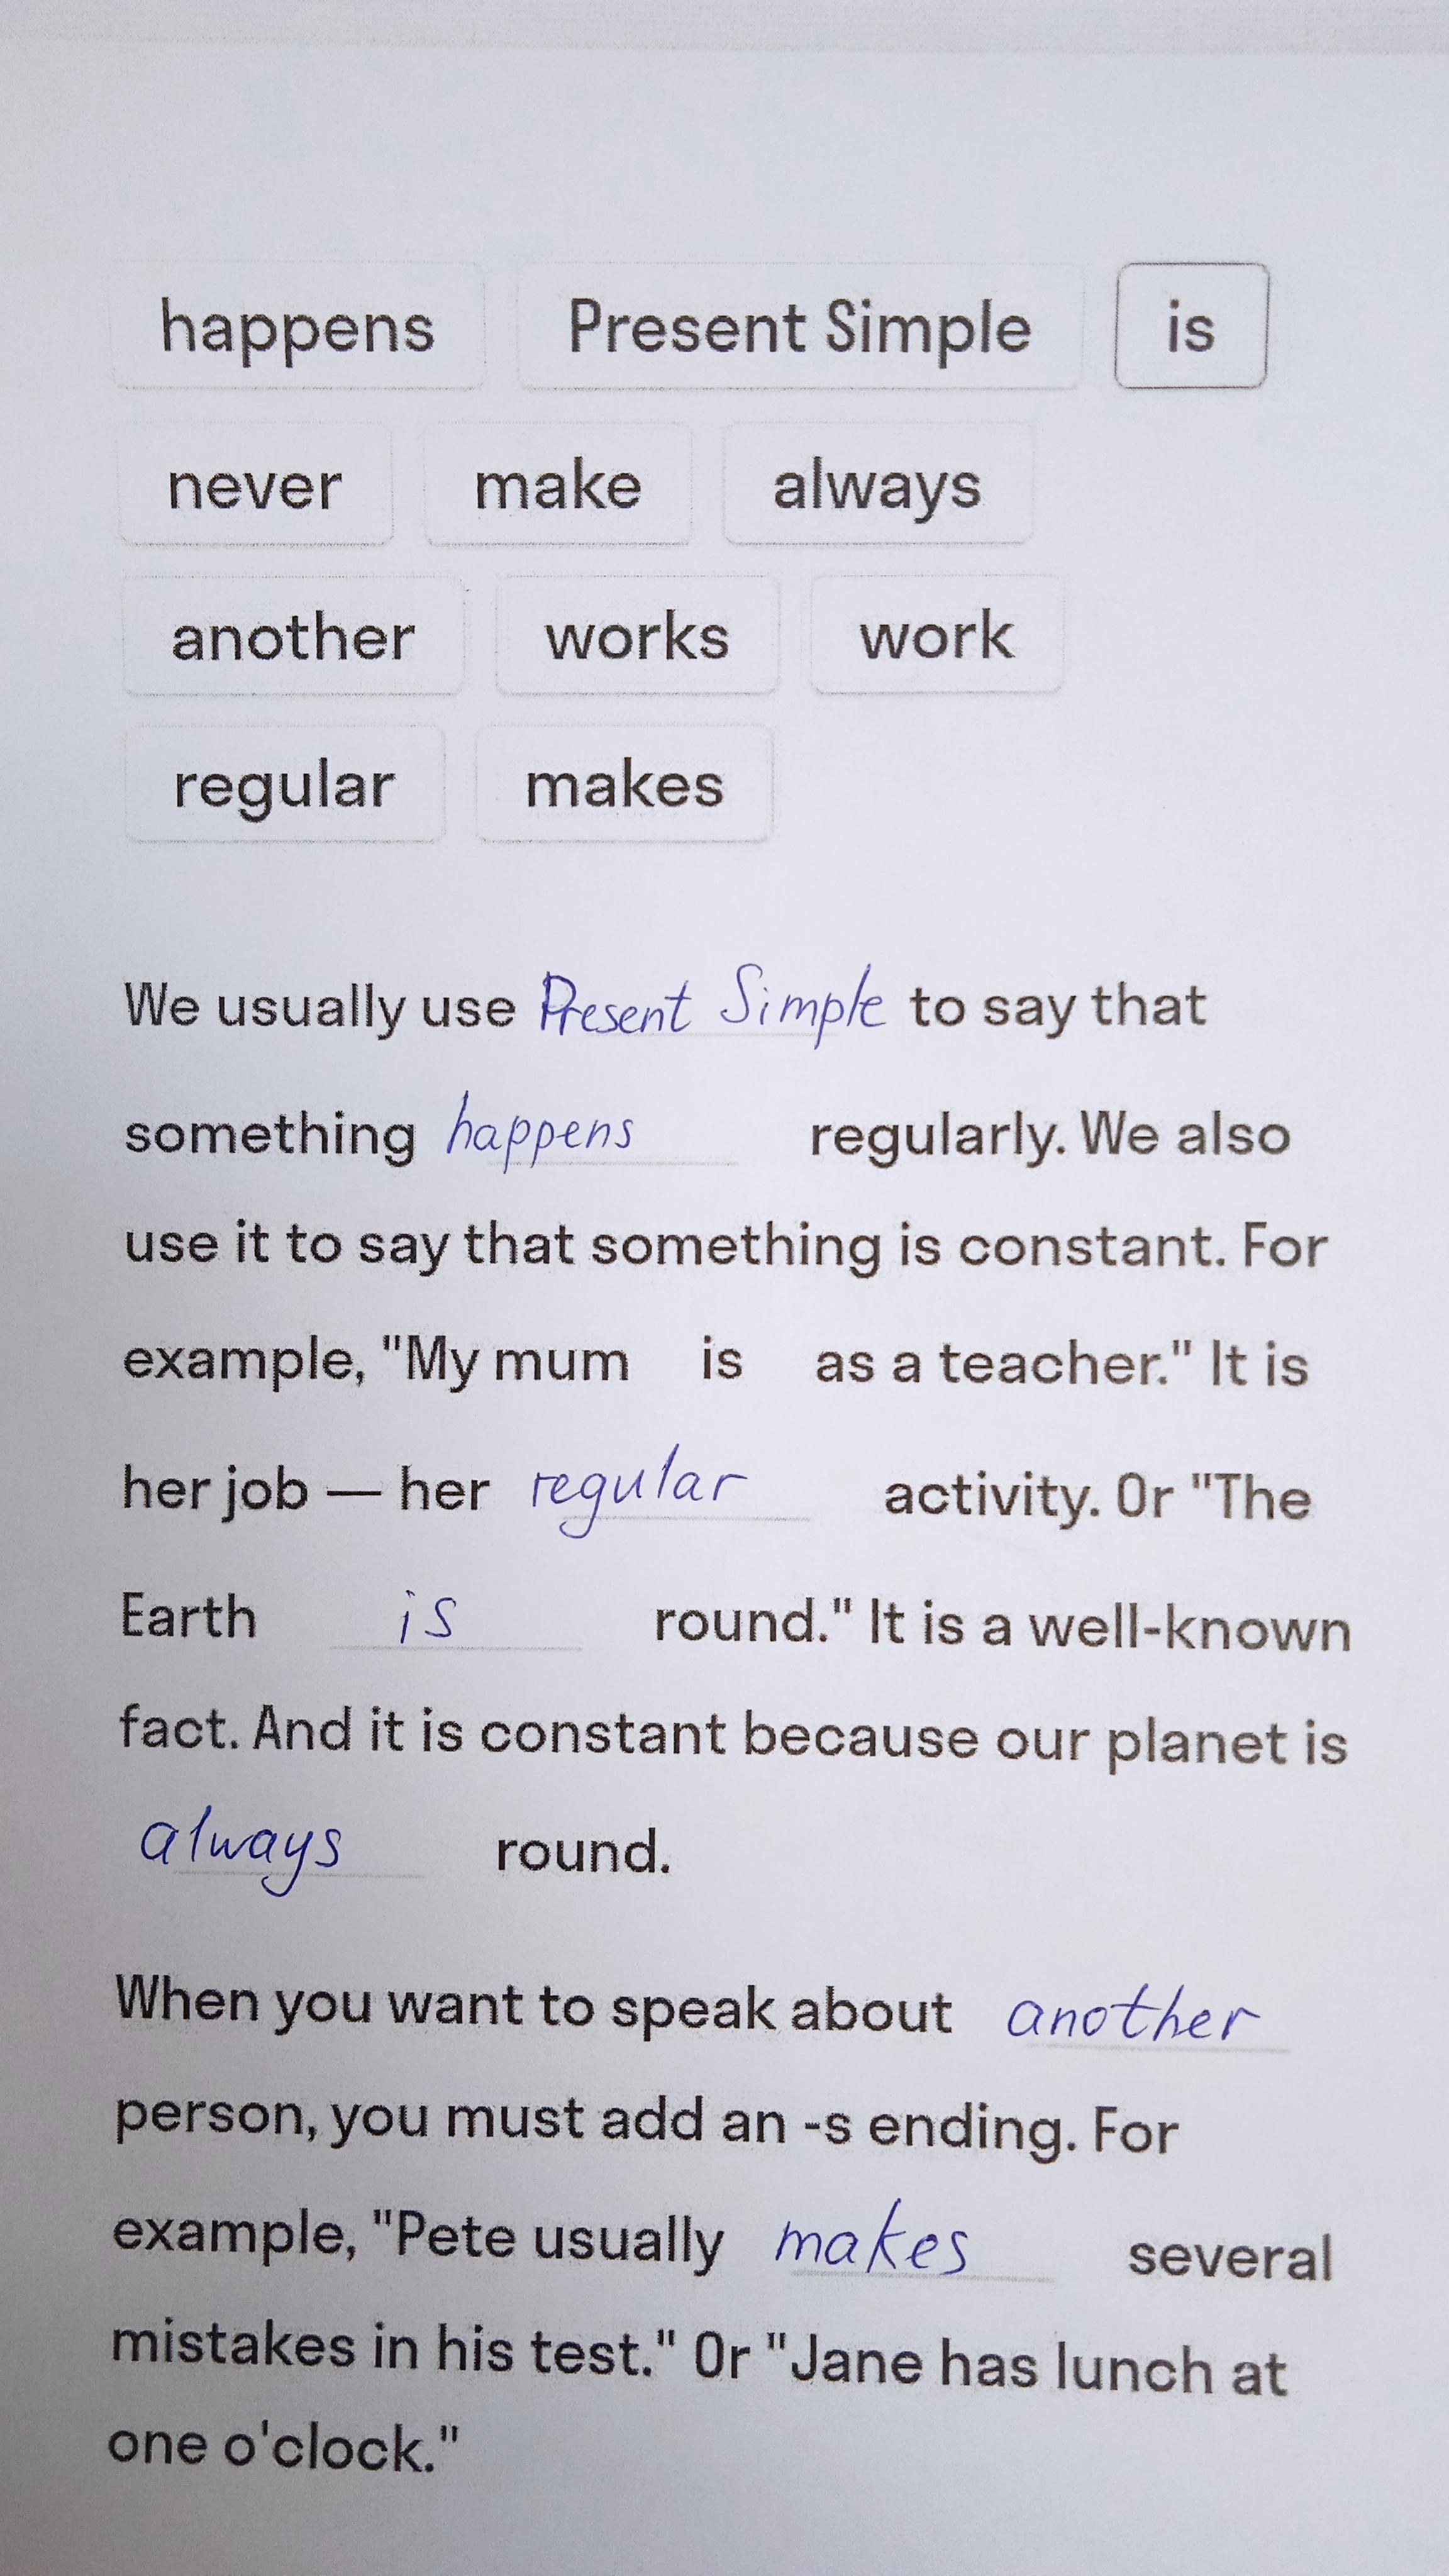 happens Present Simple is
never make always
another works work
regular makes
We usually use Present Simple to say that
something happens regularly. We also
use it to say that something is constant. For
example, "My mum is as a teacher." It is
her job — her regular activity. Or "The
Earth is round." It is a well-known
fact. And it is constant because our planet is
always round.
When you want to speak about another
person, you must add an -s ending. For
example, "Pete usually makes several
mistakes in his test." Or "Jane has lunch at
one o'clock."